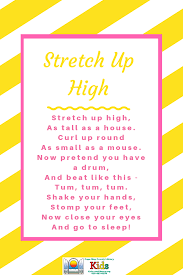 Stretch Up
High
Stretch up high,
As tall as a house.
Curl up round
As small as a mouse.
Now pretend you have
a drum,
And beat like this -
Tum, tum, tum.
Shake your hands,
Stomp your feet,
Now close your eyes
And go to sleep!
Kids